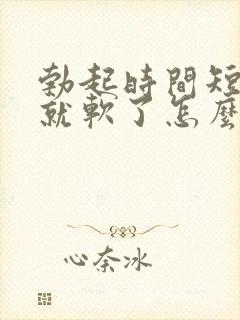 勃起時間短
就軟了怎麼
心奈冰